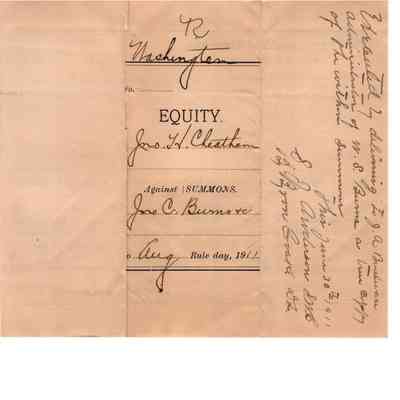 R
Washington
No.
EQUITY.
Jno. H. Cheatham
Against } SUMMONS.
Jno C. Burns &c
To Aug Rule day, 1911.
Executed by delivering to J A
Administrator of W. S. Burns a true copy
of the within summons
This June 30th 1911
Anderson
By Byron